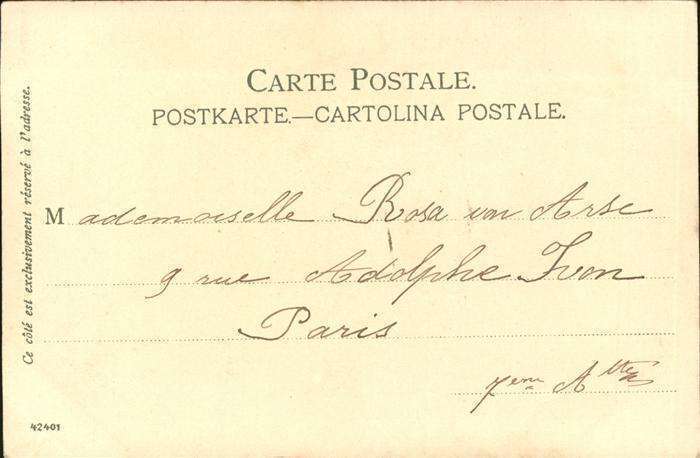 CARTE POSTALE.
POSTKARTE.—CARTOLINA POSTALE.
Ce côté est exclusivement réservé à l'adresse.
Mademoiselle Rosa von Arse
9 rue Adolphe Ivon
Paris
7eme
42401